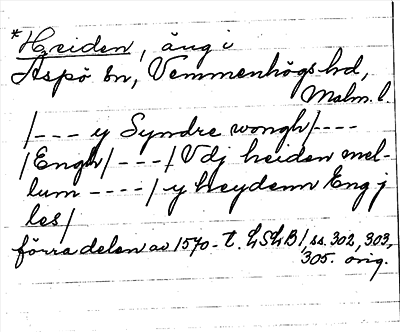 *Heiden, äng i
Äspö sn, Vemmenhögs hd,
Malm. l.
/--- y Syndre wongh/----
/Engh/---/Vdj heiden mel-
lum ----/ y heydenn Eng j
les/
förra delen av 1570-t. LSLB/, ss. 302, 303,
305. orig.